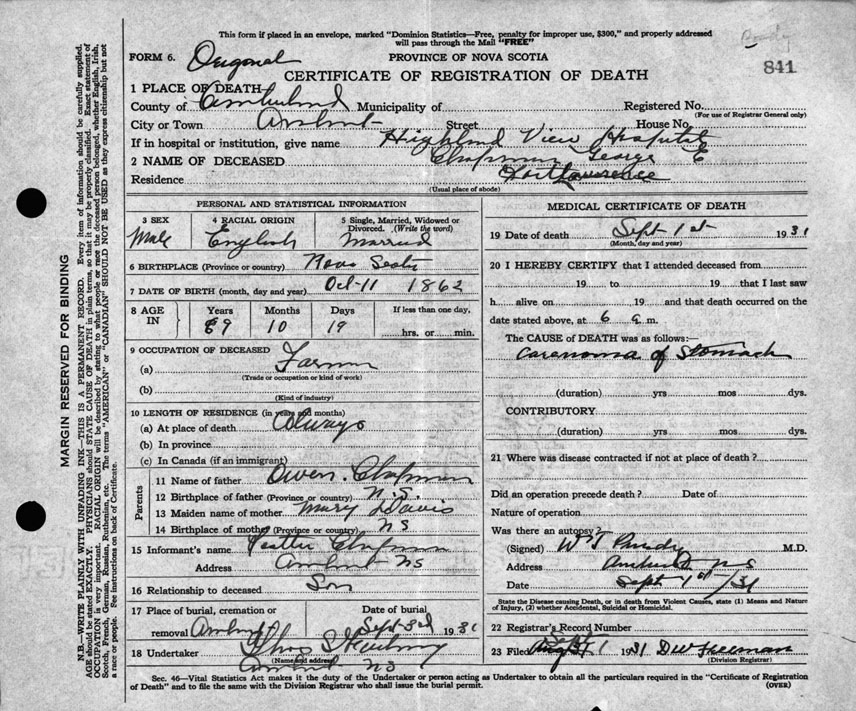 This form if placed in an envelope, marked "Dominion Statistics—Free, penalty for improper use, $300," and properly addressed
will pass through the Mail "FREE"
FORM 6. Original PROVINCE OF NOVA SCOTIA
841
CERTIFICATE OF REGISTRATION OF DEATH
1 PLACE OF DEATH—
County of Cumberland Municipality of Registered No.
(For use of Registrar General only)
City or Town Amherst Street House No.
If in hospital or institution, give name Highland View Hospital
2 NAME OF DECEASED Chapman George E
Residence Fort Lawrence
(Usual place of abode)
PERSONAL AND STATISTICAL INFORMATION
3 SEX 4 RACIAL ORIGIN 5 Single, Married, Widowed or
Divorced. (Write the word)
Male English Married
6 BIRTHPLACE (Province or country) Nova Scotia
7 DATE OF BIRTH (month, day and year) Oct-11 1862
8 AGE IN Years Months Days If less than one day,
10 19 hrs. or min.
9 OCCUPATION OF DECEASED
(a) Farmer
(Trade or occupation or kind of work)
(b)
(Kind of industry)
10 LENGTH OF RESIDENCE (in years and months)
(a) At place of death Always
(b) In province
(c) In Canada (if an immigrant)
Parents
11 Name of father Owen Chapman
12 Birthplace of father (Province or country) N.S.
13 Maiden name of mother Mary Davis
14 Birthplace of mother (Province or country) NS
15 Informant's name Chapman
Address Amherst NS
16 Relationship to deceased Son
17 Place of burial, cremation or Date of burial
removal Amherst Sept 3rd 1931
18 Undertaker
(Name and address)
Amherst NS
MEDICAL CERTIFICATE OF DEATH
19 Date of death Sept 1st 1931
(Month, day and year)
20 I HEREBY CERTIFY that I attended deceased from
19 to 19 that I last saw
h alive on 19 and that death occurred on the
date stated above, at 6 a.m.
The CAUSE of DEATH was as follows:—
Carcinoma of Stomach
(duration) yrs mos dys.
CONTRIBUTORY
(duration) yrs. mos. dys.
21 Where was disease contracted if not at place of death?
Did an operation precede death? Date of
Nature of operation
Was there an autopsy?
(Signed) Purdy M.D.
Address Amherst NS
Date Sept 1st/31
State the Disease causing Death, or in death from Violent Causes, state (1) Means and Nature
of Injury, (2) whether Accidental, Suicidal or Homicidal.
22 Registrar's Record Number
23 Filed Sept 1 1931 DW Freeman
(Division Registrar)
Sec. 46—Vital Statistics Act makes it the duty of the Undertaker or person acting as Undertaker to obtain all the particulars required in the "Certificate of Registration
of Death" and to file the same with the Division Registrar who shall issue the burial permit. (OVER)
MARGIN RESERVED FOR BINDING
N.B.—WRITE PLAINLY WITH UNFADING INK—THIS IS A PERMANENT RECORD. Every item of information should be carefully supplied.
AGE should be stated EXACTLY. PHYSICIANS should STATE CAUSE OF DEATH in plain terms, so that it may be properly classified. Exact statement of
OCCUPATION is very important. RACIAL ORIGIN will be described by stating to what people or race the deceased person belonged, whether English, Irish,
Scotch, French, German, Russian, Ruthenian, etc. The terms "AMERICAN" or "CANADIAN" SHOULD NOT BE USED as they express citizenship but not
a race or people. See instructions on back of Certificate.